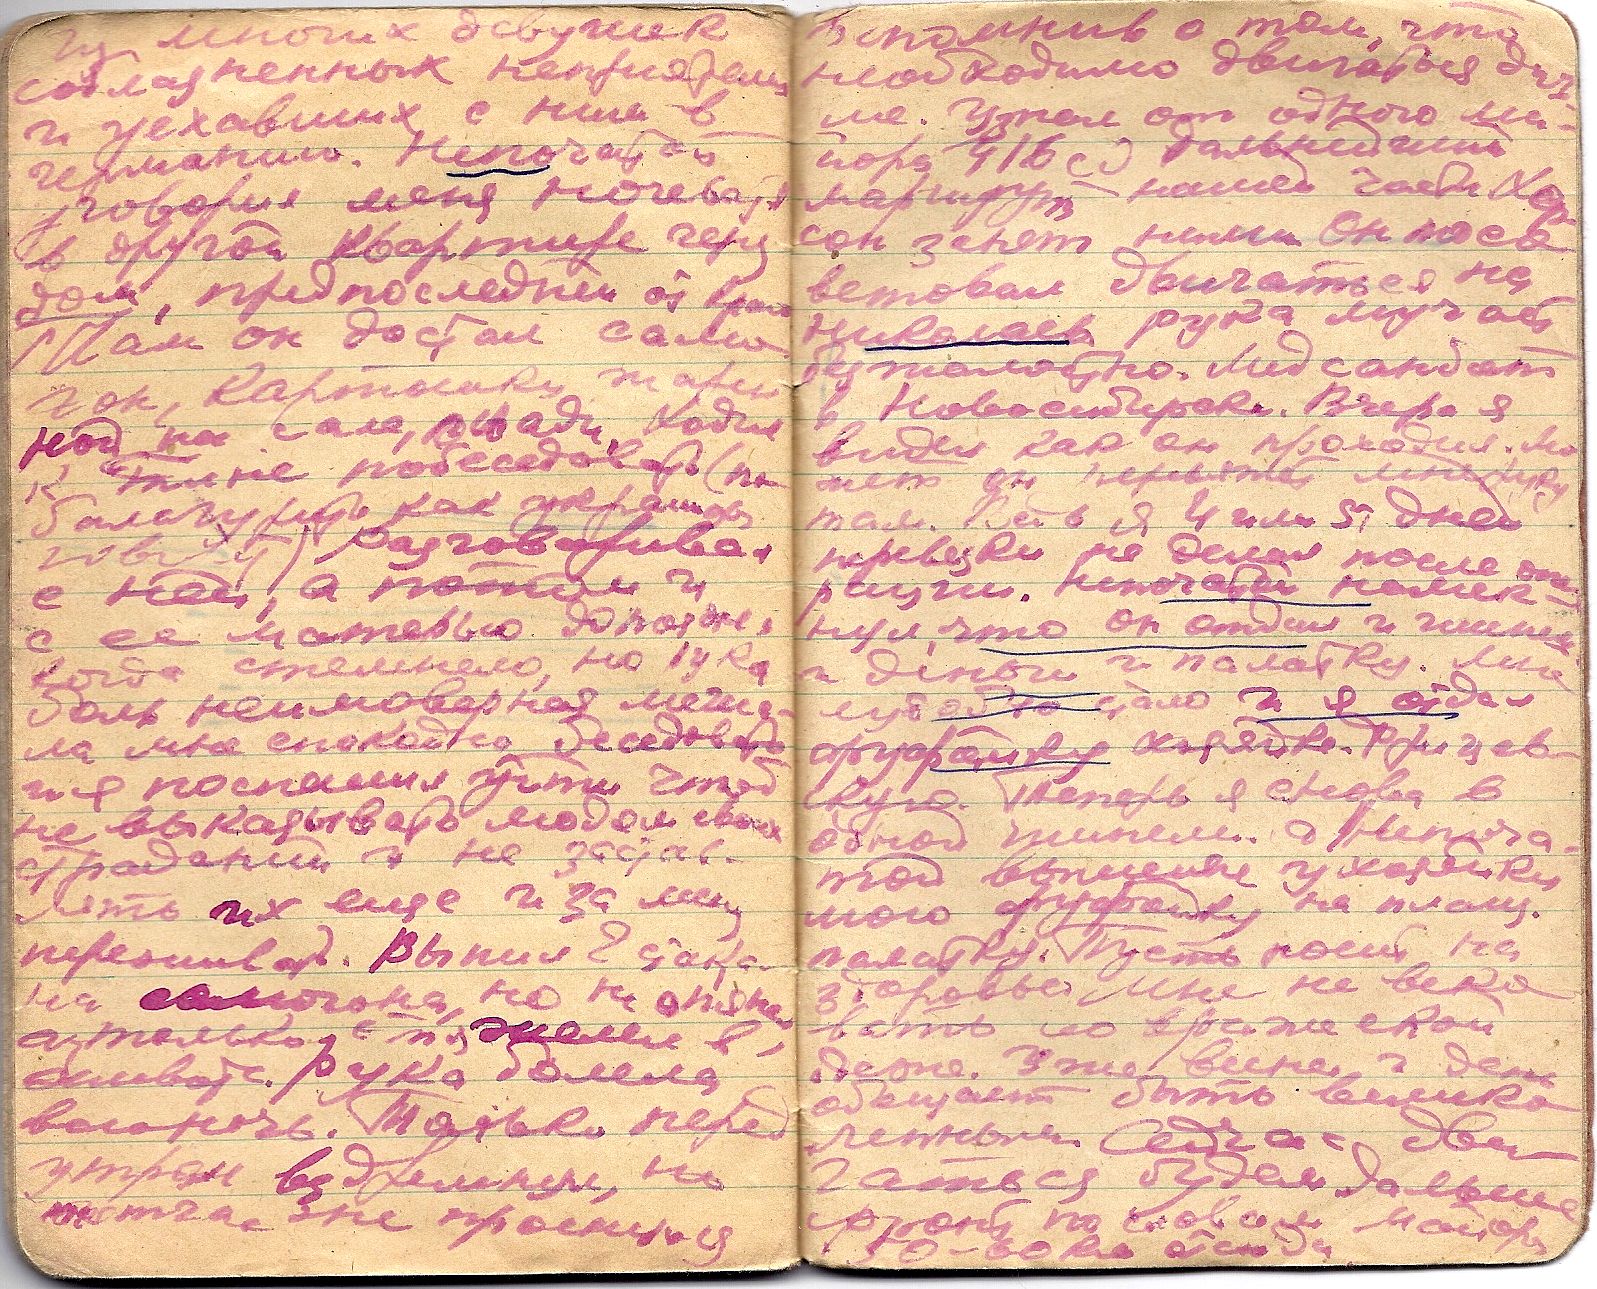 из многих девушек
соблазненных неприятелем
и уехавших с ним в
германию. Непочатой
уговорил меня ночевать
в другой квартире через
дом, предпоследней от края
Там он достал само-
гон, картошку, жарен-
ной на сале, ходил
к побеседовать (по-
балагурить как украинцы
говорят) Разговаривал
с ней, а потом и
с ее матерью допоздна,
когда стемнело, но рука
боль неимоверная меша-
ла мне спокойно беседовать
и я поспешил уйти чтоб
не выказывать людям своих
страданий и не застав-
лять их еще и за меня
переживать. Выпил 2 стака-
на самогона, но не опьянел
а только отяжелел
Рука болела
всю ночь. Только перед
утром вздремнул, но
тотчас же проснулся
Вспомнив о том, что
необходимо двигаться даль-
ше. Узнал от одного ма-
йора 916 сп дальнейший
маршрут нашей части Хер-
сон занят нами. Он посо-
ветовал двигаться на
Николаев. рука мучает
безжалостно. Медсанбат
в Новосибирске. Вчера я
видел как он проходил. Мо-
жет он перевяжет мне руку
там. Ведь я 4 или 5 дней
перевязки не делал после опе-
рации. Непочатой намек-
нул, что он отдал и шинель
и деньги и палатку. Мне
стало и я отдал
фуфайку хозяйке. Трицев-
скую. Теперь я снова в
одной шинели. а Непоча-
той выменял у хозяйки
мою фуфайку на плащ-
палатку. Пусть носит на
здоровье. Мне не века-
вать во вражеской
одеже. Уже весна и день
обещает быть велико-
лепным. Сейчас дви-
гаться будем дальше
фронт по словам майора
50-60 км отсюда